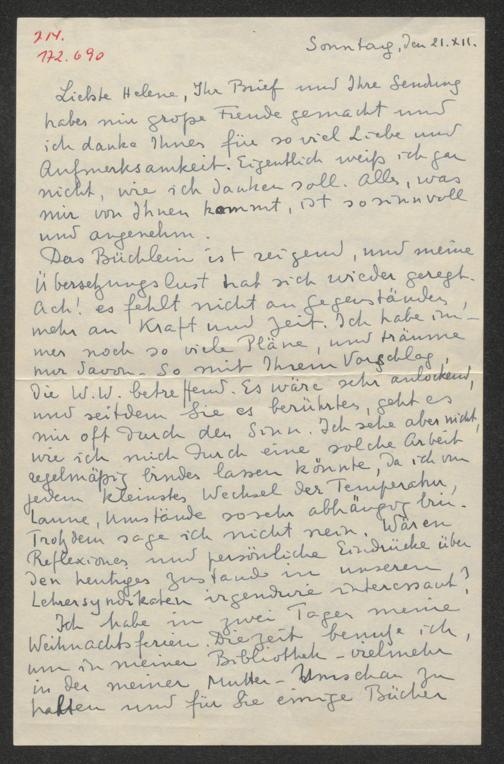 214.
172.690
Sonntag, den 21.XII.
Liebste Helene, Ihr Brief und Ihre Sendung
haben mir große Freude gemacht und
ich danke Ihnen für so viel Liebe und
Aufmerksamkeit. Eigentlich weiß ich gar
nicht, wie ich danken soll. Alles, was
mir von Ihnen kommt, ist so sinnvoll
und angenehm.
Das Büchlein ist reizend, und meine
Übersetzungslust hat sich wieder geregt.
Ach! es fehlt nicht an Gegenständen,
mehr an Kraft und Zeit. Ich habe im-
mer noch so viele Pläne, und träume
nur davon. So mit Ihrem Vorschlag,
die W.W. betreffend. Es wäre sehr anlockend,
und seitdem Sie es berührten, geht es
mir oft durch den Sinn. Ich sehe aber nicht,
wie ich mich durch eine solche Arbeit
regelmäßig binden lassen könnte, da ich von
jedem kleinsten Wechsel der Temperatur,
Laune, Umstände so sehr abhängig bin.
Trotzdem sage ich nicht nein. Wären
Reflexionen und persönliche Eindrücke über
den heutigen Zustand in unseren
Lehrersyndikaten irgendwie interessant?
Ich habe in zwei Tagen meine
Weihnachtsferien. Die Zeit benutze ich,
um in meiner Bibliothek - vielmehr
in der meiner Mutter - Umschau zu
halten und für Sie einige Bücher